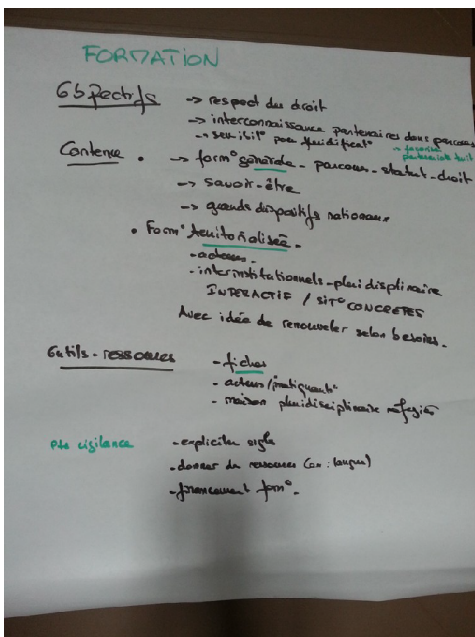 FORMATION
Objectifs -> respect du droit
-> interconnaissance partenaires dans parcours
-> sensibil° pour fluidificat°
-> favoriser
partenariats
Contenu • -> form° générale - parcours - statut - droit
-> savoir-être
-> grands dispositifs nationaux
• Form° territorialisée -
- acteurs -
- interinstitutionnels - pluridisplinaire
INTERACTIF / SIT° CONCRETES
Avec idée de renouveler selon besoins.
Outils - ressources - fiches
- acteurs/pratiquants
- maison pluridisciplinaire réfugiés
Pts vigilance - expliciter sigle
- donner des ressources (ex : langue)
- financement form° -